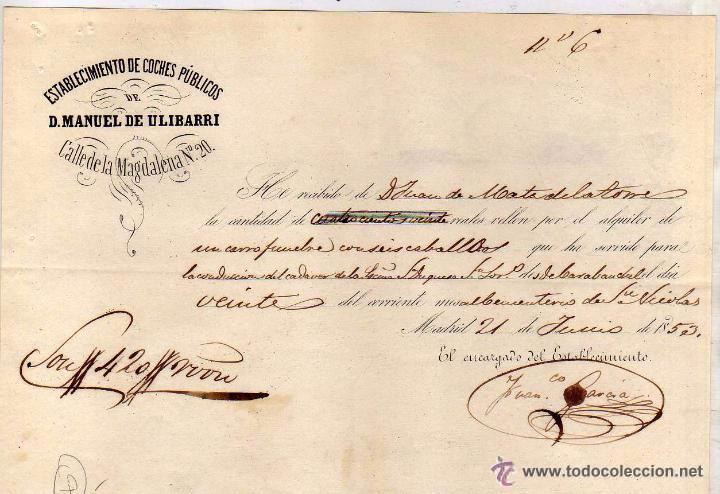 nº 6
ESTABLECIMIENTO DE COCHES PÚBLICOS
DE
D. MANUEL DE ULIBARRI
Calle de la Magdalena Nº. 20.
He recibido de D. Juan de Mata de la Torre
la cantidad de cuatrocientos veinte reales vellon por el alquiler de
un carro funebre con seis caballos que ha servido para
la conducion del cadaver de la Duquesa desde Carabanchel el dia
veinte del corriente mes al cementerio de Sn. Nicolas
Madrid 21 de Junio de 1853.
El encargado del Establecimiento.
Son 420 rvon
Franco. Garcia
www.todocoleccion.net